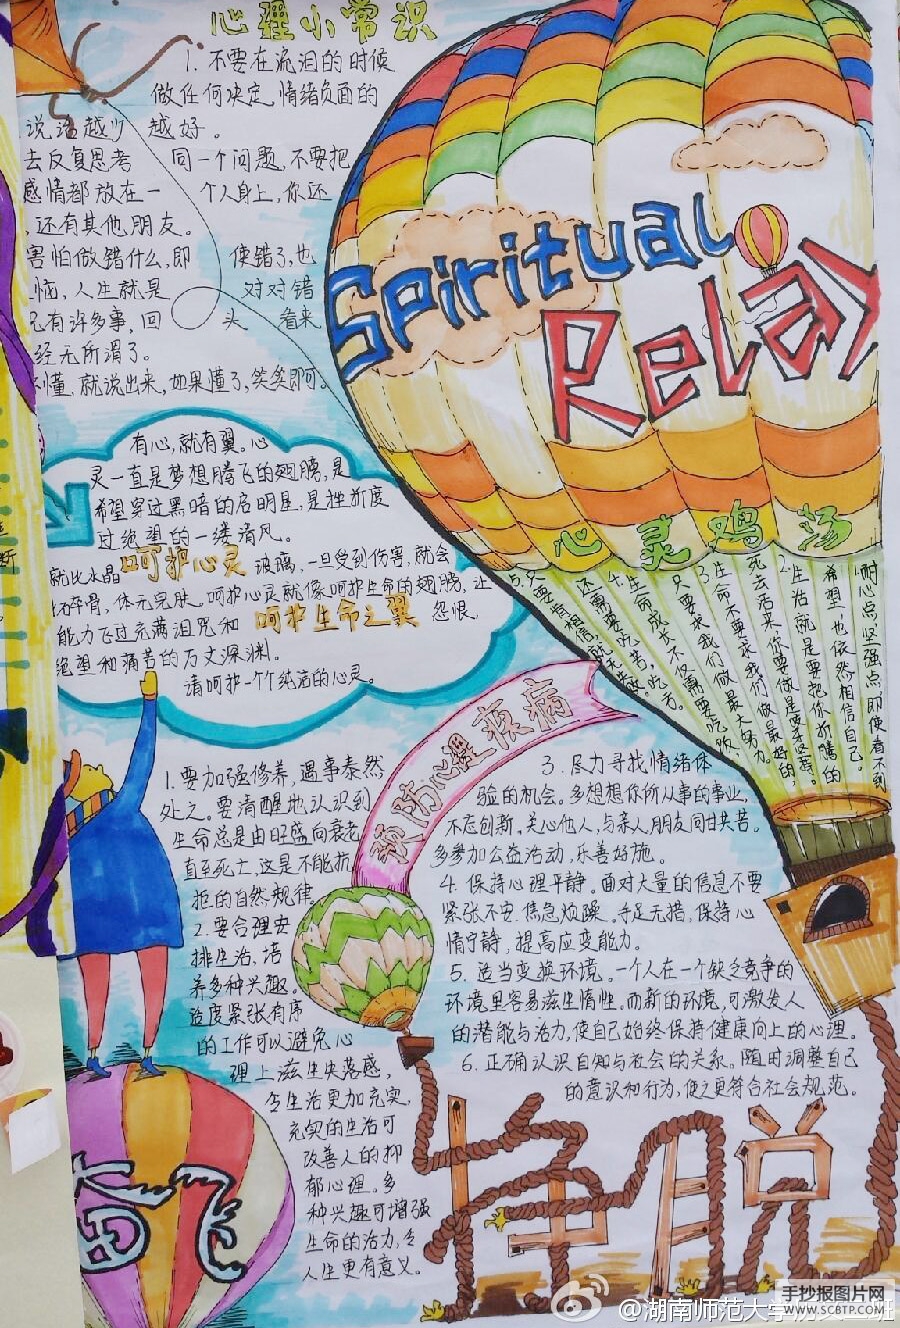 心理小常识
1. 不要在流泪的时候
做任何决定,情绪负面的
说话越少 越好。
去反复思考 同一个问题,不要把
感情都放在一 个人身上,你还
,还有其他朋友。
害怕做错什么,即 使错了,也
恼,人生就是 对对错
有许多事,回 头 看来
经无所谓了。
懂,就说出来,如果懂了,笑笑即可。
Spiritual
Relay
有心,就有翼。心
灵一直是梦想腾飞的翅膀,是
希望穿过黑暗的启明星,是挫折度
过绝望的一缕清风。
就比水晶 呵护心灵 玻璃,一旦受到伤害,就会
碎骨,体无完肤。呵护心灵就像呵护生命的翅膀,让
能力飞过充满诅咒和 呵护生命之翼 怨恨
绝望和痛苦的万丈深渊。
请呵护一个个纯洁的心灵。
心灵鸡汤
1.耐心点,坚强点,即使看不到
希望,也依然相信自己。
2.生活就是要把你折腾的
死去活来,你要做
3.生命不要求我们做最好的,
只要求我们做最大努力。
4.生命成长不仅需要吃饭
还需要吃苦,吃
5.只要肯相信,就
预防心理疾病
1.要加强修养,遇事泰然
处之。要清醒地认识到
生命总是由旺盛向衰老
直至死亡,这是不能抗
拒的自然规律。
2.要合理安
排生活,培
养多种兴趣。
适度紧张有序
的工作可以避免心
理上滋生失落感,
令生活更加充实,
充实的生活可
改善人的抑
郁心理。多
种兴趣可增强
生命的活力,令
人生更有意义。
3. 尽力寻找情绪体
验的机会。多想想你所从事的事业,
不忘创新。关心他人,与亲人朋友同甘共苦。
多参加公益活动,乐善好施。
4. 保持心理平静。面对大量的信息不要
紧张不安,焦急烦躁。手足无措,保持心
情宁静,提高应变能力。
5. 适当变换环境。一个人在一个缺乏竞争的
环境里容易滋生惰性。而新的环境,可激发人
的潜能与活力,使自己始终保持健康向上的心理。
6. 正确认识自知与社会的关系。随时调整自己
的意识和行为,使之更符合社会规范。
挣脱
飞
@湖南师范大学
班
手抄报图片网
WWW.SCBTP.COM